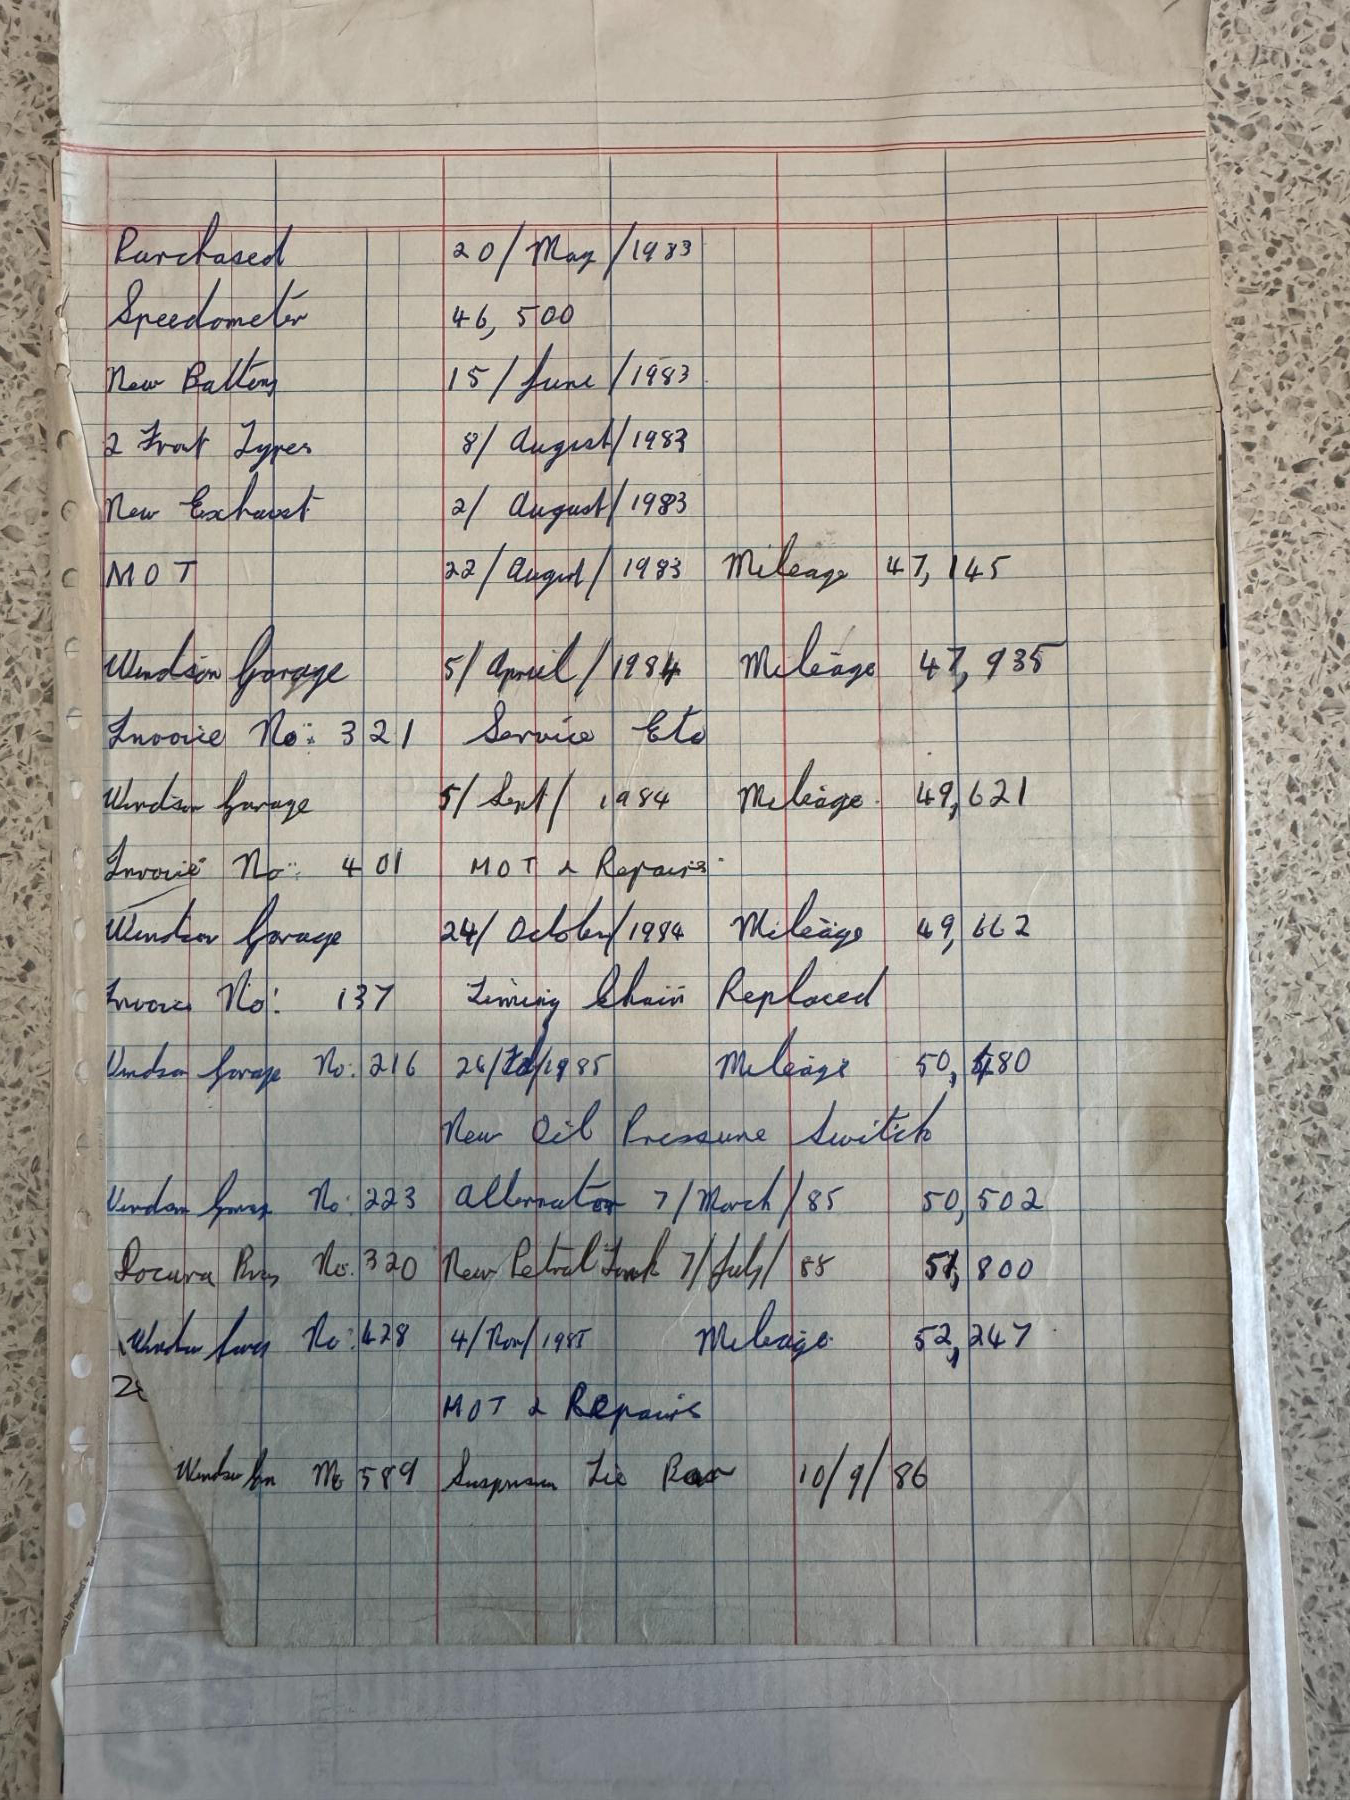 Purchased 20/May/1983
Speedometer 46,500
New Battery 15/June/1983
2 Front Tyres 8/August/1983
New Exhaust 2/August/1983
MOT 22/August/1983 Mileage 47,145
Windsor Garage 5/April/1984 Mileage 47,935
Invoice No: 321 Service Etc
Windsor Garage 5/Sept/1984 Mileage 49,621
Invoice No: 401 MOT & Repairs
Windsor Garage 24/October/1984 Mileage 49,662
Invoice No: 137 Timing Chain Replaced
Windsor Garage No: 216 26/Feb/1985 Mileage 50,480
New Oil Pressure Switch
Windsor Garage No: 223 Alternator 7/March/85 50,502
No: 320 New Petrol Tank 7/July/85 51,800
Windsor No: 428 4/Nov/1985 Mileage 52,247
MOT & Repairs
Windsor No 589 Suspension Tie Bar 10/9/86